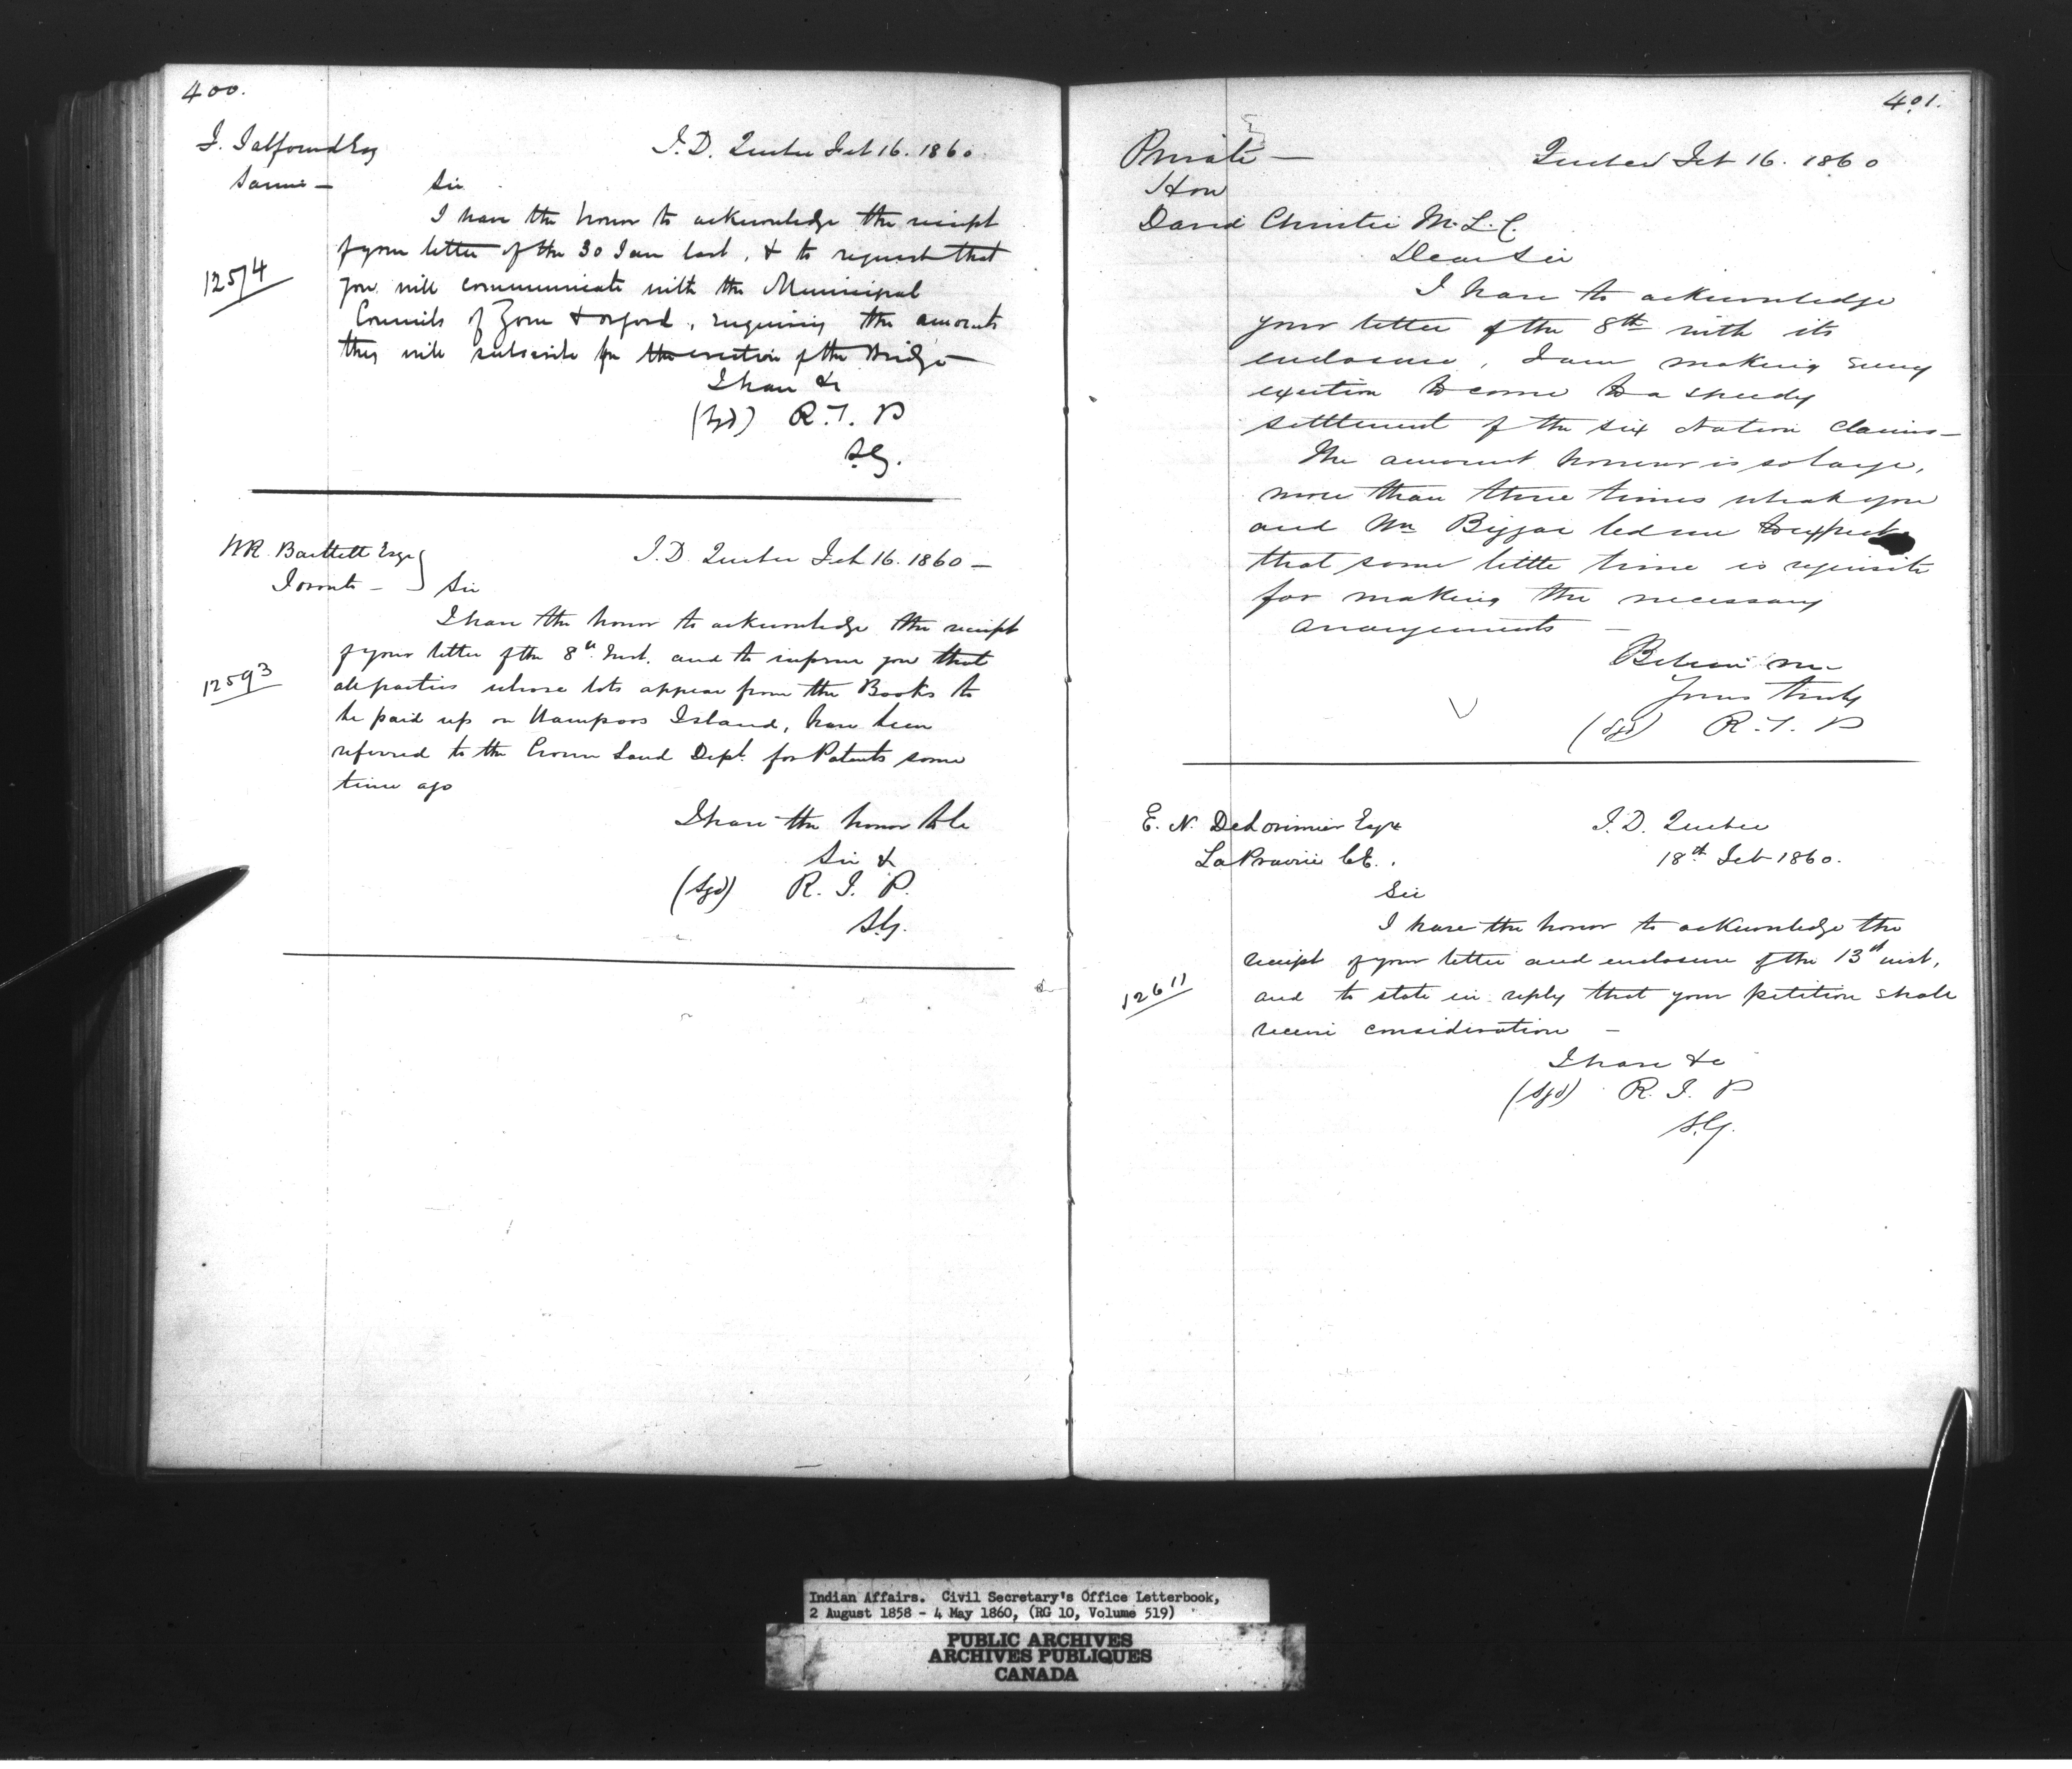 400.
F. Talfourd Esq
Sarnia —
I.D. Quebec Feb 16. 1860.
Sir
I have the honor to acknowledge the receipt
of your letter of the 30 Jan last, & to request that
12574
you will communicate with the Municipal
Councils of Zone & Orford, enquiring the amounts
they will subscribe for the erection of the Bridge —
I have &c
(Sgd) R. T. P
S.G.
W R. Bartlett Esqr
Toronto —
I.D. Quebec Feb 16. 1860 —
Sir
I have the honor to acknowledge the receipt
of your letter of the 8th Inst. and to inform you that
12593
all parties whose lots appear from the Books to
be paid up on Wampoos Island, have been
referred to the Crown Land Dept. for Patents some
time ago
I have the honor to be
Sir &
(Sgd) R. T. P.
S.G.
401.
Private —
Quebec Feb 16. 1860
Hon
David Christie M.L.C.
Dear Sir
I have to acknowledge
your letter of the 8th with its
enclosure, I am making every
exertion to come to a speedy
settlement of the Six Nation Claims —
The amount however is so large,
more than three times what you
and Mr Biggar led me to expect
that some little time is requisite
for making the necessary
arrangements —
Believe me
Yours truly
(Sgd) R. T. P
E. N. DeLorimier Esqr
LaPrairie C.E.
I.D. Quebec
18th Feb 1860.
Sir
I have the honor to acknowledge the
receipt of your letter and enclosure of the 13th inst,
12611
and to state in reply that your petition shall
receive consideration —
I have &c
(Sgd) R. T. P
S.G.
Indian Affairs. Civil Secretary's Office Letterbook,
2 August 1858 - 4 May 1860, (RG 10, Volume 519)
PUBLIC ARCHIVES
ARCHIVES PUBLIQUES
CANADA